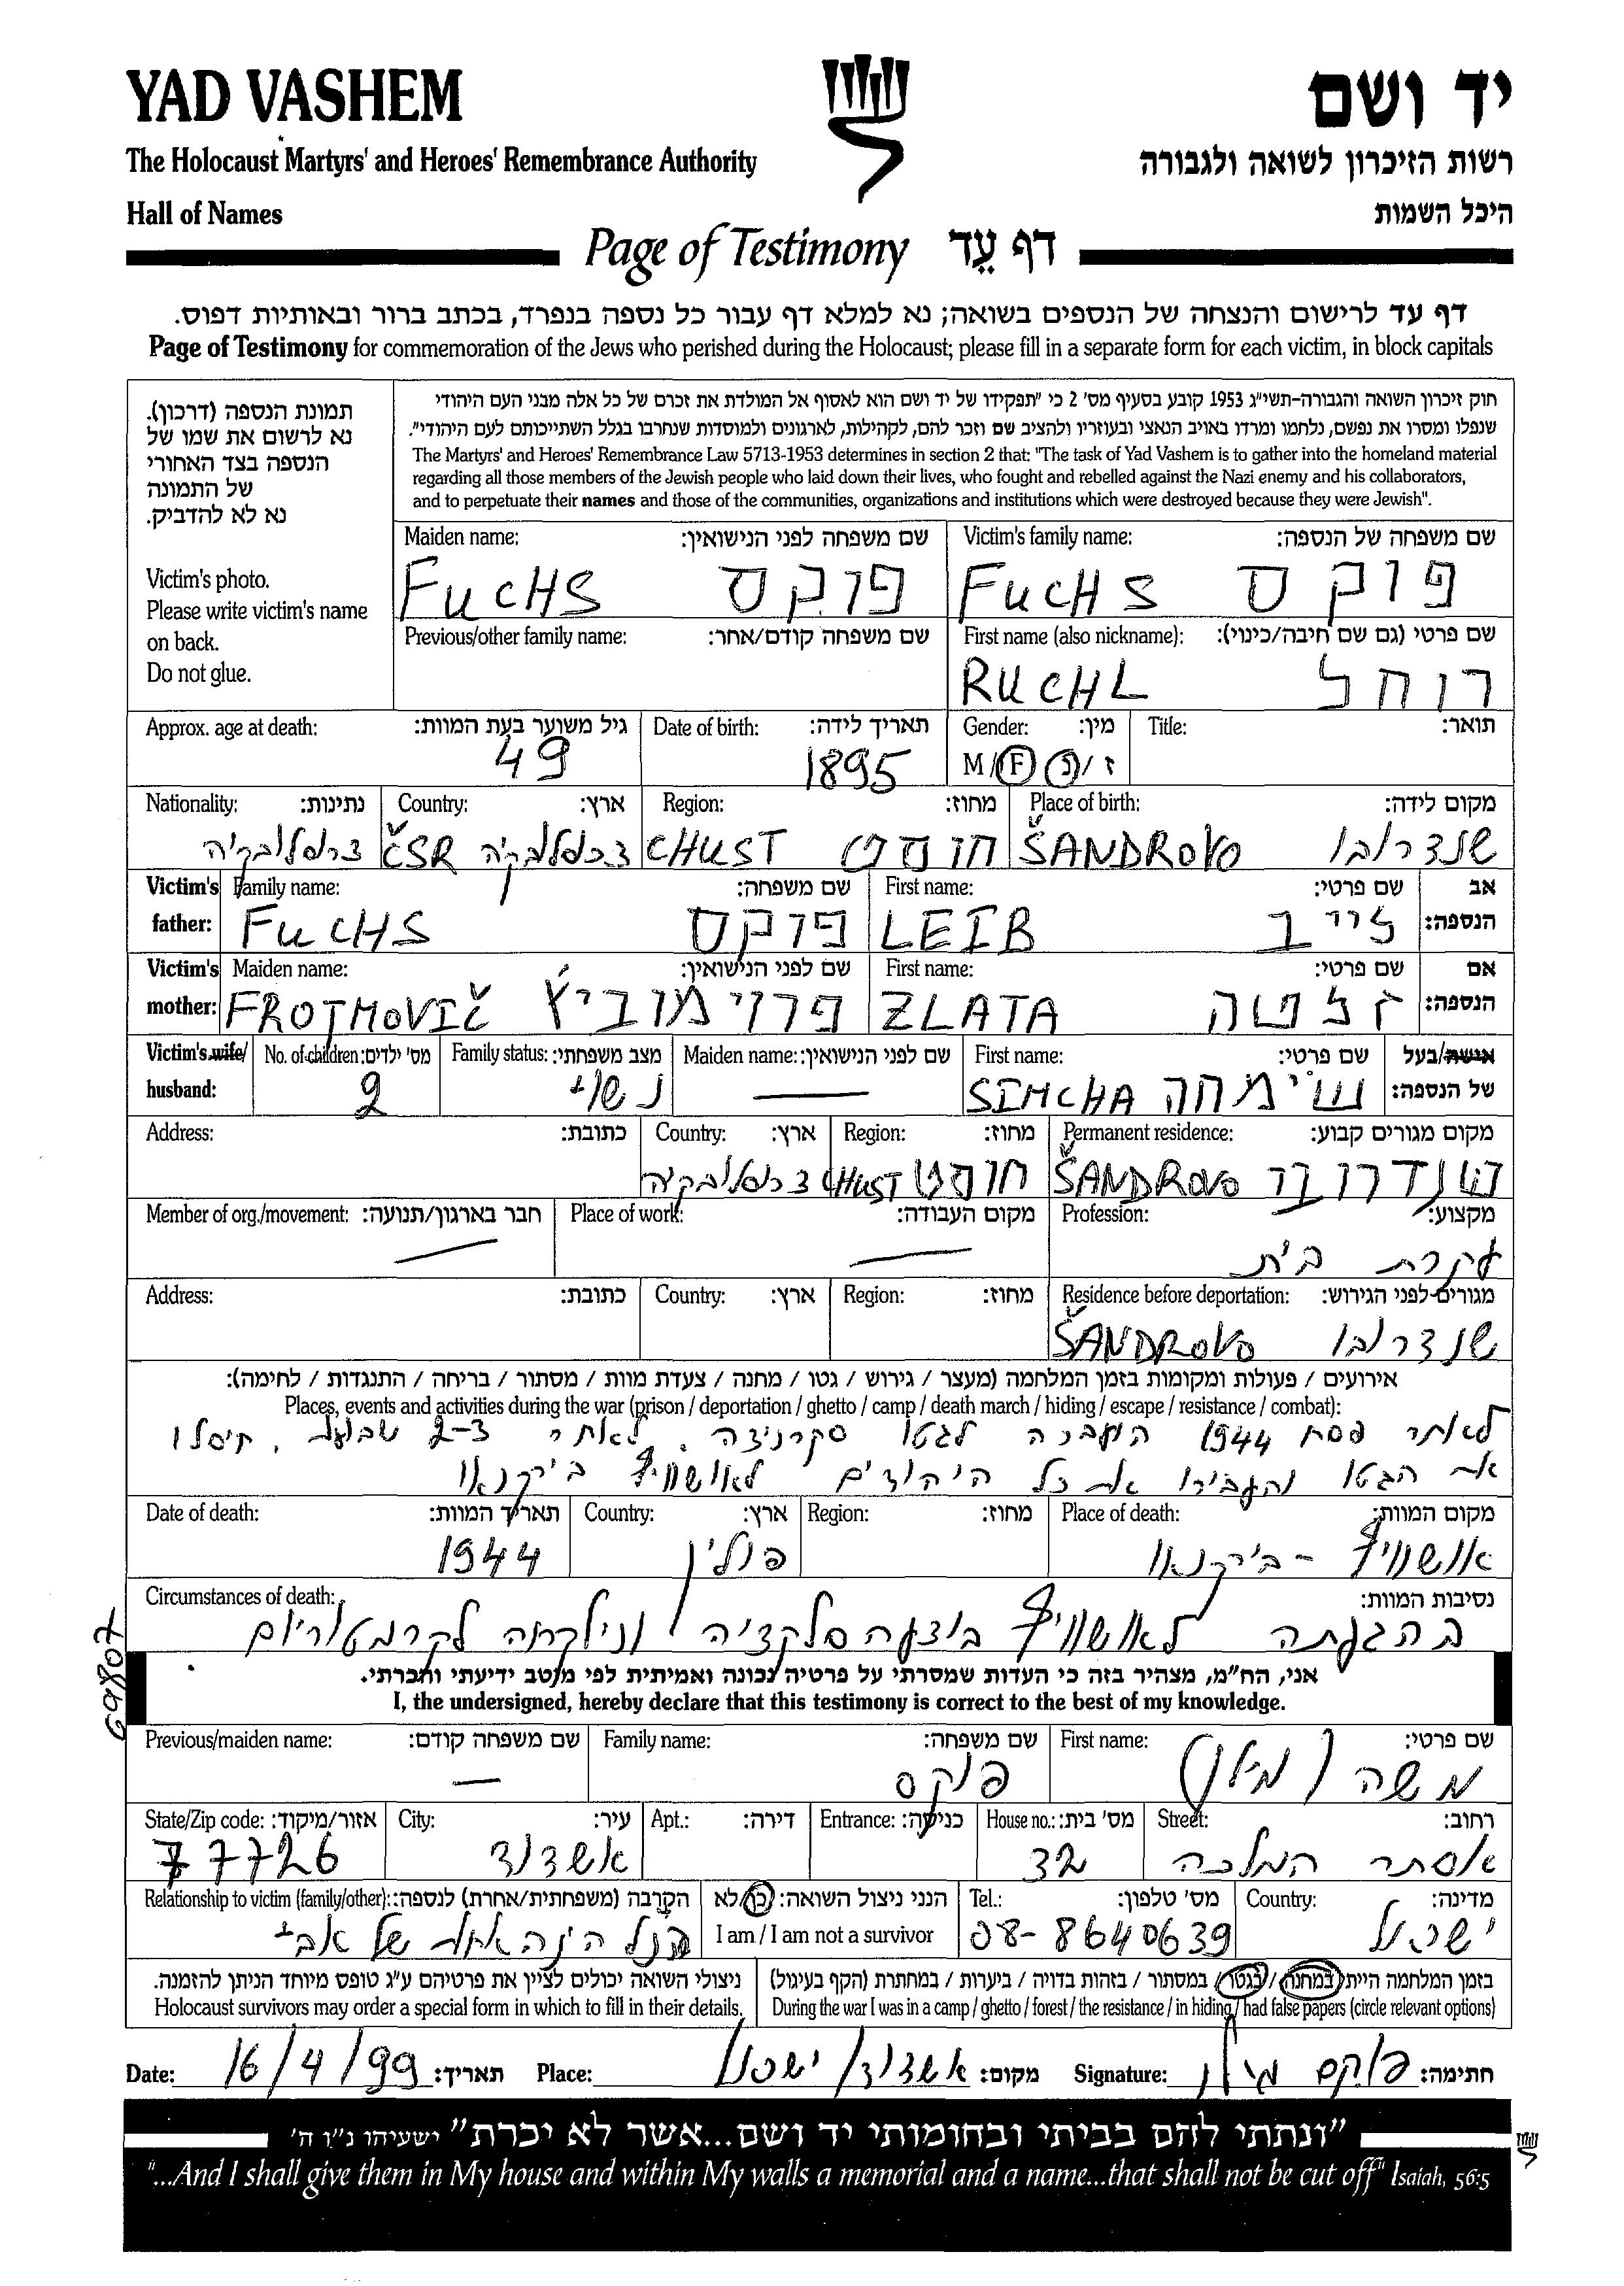 YAD VASHEM
יד ושם
The Holocaust Martyrs' and Heroes' Remembrance Authority
רשות הזיכרון לשואה ולגבורה
Hall of Names
היכל השמות
Page of Testimony דף עֵד
דף עד לרישום והנצחה של הנספים בשואה; נא למלא דף עבור כל נספה בנפרד, בכתב ברור ובאותיות דפוס.
Page of Testimony for commemoration of the Jews who perished during the Holocaust; please fill in a separate form for each victim, in block capitals
תמונת הנספה (דרכון).
נא לרשום את שמו של
הנספה בצד האחורי
של התמונה
נא לא להדביק.
Victim's photo.
Please write victim's name
on back.
Do not glue.
חוק זיכרון השואה והגבורה-תשי"ג 1953 קובע בסעיף מס' 2 כי "תפקידו של יד ושם הוא לאסוף אל המולדת את זכרם של כל אלה מבני העם היהודי
שנפלו ומסרו את נפשם, נלחמו ומרדו באויב הנאצי ובעוזריו ולהציב שם וזכר להם, לקהילות, לארגונים ולמוסדות שנחרבו בגלל השתייכותם לעם היהודי".
The Martyrs' and Heroes' Remembrance Law 5713-1953 determines in section 2 that: "The task of Yad Vashem is to gather into the homeland material
regarding all those members of the Jewish people who laid down their lives, who fought and rebelled against the Nazi enemy and his collaborators,
and to perpetuate their names and those of the communities, organizations and institutions which were destroyed because they were Jewish".
Maiden name: שם משפחה לפני הנישואין: Victim's family name: שם משפחה של הנספה:
FUCHS פוקס FUCHS פוקס
Previous/other family name: שם משפחה קודם/אחר: First name (also nickname): שם פרטי (גם שם חיבה/כינוי):
RUCHL רוחל
Approx. age at death: גיל משוער בעת המוות: Date of birth: תאריך לידה: Gender: מין: Title: תואר:
49 1895 M / F נ / ז
Nationality: נתינות: Country: ארץ: Region: מחוז: Place of birth: מקום לידה:
צ'כוסלובקיה ČSR צ'כוסלובקיה CHUST חוסט ŠANDROVO שנדרובו
Victim's father: Family name: שם משפחה: First name: שם פרטי: אב הנספה:
FUCHS פוקס LEIB לייב
Victim's mother: Maiden name: שם לפני הנישואין: First name: שם פרטי: אם הנספה:
FROJMOVIČ פרוימוביץ' ZLATA זלטה
Victim's wife/ husband: No. of children: מס' ילדים: Family status: מצב משפחתי: Maiden name: שם לפני הנישואין: First name: שם פרטי: אישה/בעל של הנספה:
2 נשוי — SIMCHA שימחה
Address: כתובת: Country: ארץ: Region: מחוז: Permanent residence: מקום מגורים קבוע:
צ'כוסלובקיה CHUST חוסט ŠANDROVO שנדרובו
Member of org./movement: חבר בארגון/תנועה: Place of work: מקום העבודה: Profession: מקצוע:
— — עקרת בית
Address: כתובת: Country: ארץ: Region: מחוז: Residence before deportation: מגורים לפני הגירוש:
ŠANDROVO שנדרובו
אירועים / פעולות ומקומות בזמן המלחמה (מעצר / גירוש / גטו / מחנה / צעדת מוות / מסתור / בריחה / התנגדות / לחימה):
Places, events and activities during the war (prison / deportation / ghetto / camp / death march / hiding / escape / resistance / combat):
לאחר פסח 1944 הועברה לגטו סקרניצה. לאחר 2-3 שבועות, חיסלו
את הגטו והעבירו את כל היהודים לאושוויץ בירקנאו
Date of death: תאריך המוות: Country: ארץ: Region: מחוז: Place of death: מקום המוות:
1944 פולין אושוויץ - בירקנאו
Circumstances of death: נסיבות המוות:
בהגעתה לאושוויץ בוצעה סלקציה ונילקחה לקרמטוריום
69807
אני, הח"מ, מצהיר בזה כי העדות שמסרתי על פרטיה נכונה ואמיתית לפי מיטב ידיעתי והכרתי.
I, the undersigned, hereby declare that this testimony is correct to the best of my knowledge.
Previous/maiden name: שם משפחה קודם: Family name: שם משפחה: First name: שם פרטי:
— פוקס משה (מילן)
State/Zip code: אזור/מיקוד: City: עיר: Apt.: דירה: Entrance: כניסה: House no.: מס' בית: Street: רחוב:
77726 אשדוד 32 אסתר המלכה
Relationship to victim (family/other): הקרבה (משפחתית/אחרת) לנספה: הנני ניצול השואה: כן/לא Tel.: מס' טלפון: Country: מדינה:
הנל הינה אחות של אבי I am / I am not a survivor 08-8640639 ישראל
ניצולי השואה יכולים לציין את פרטיהם ע"ג טופס מיוחד הניתן להזמנה.
Holocaust survivors may order a special form in which to fill in their details.
בזמן המלחמה הייתי במחנה / בגטו / במסתור / בזהות בדויה / ביערות / במחתרת (הקף בעיגול)
During the war I was in a camp / ghetto / forest / the resistance / in hiding / had false papers (circle relevant options)
Date: 16/4/99 תאריך: Place: אשדוד/ישראל מקום: Signature: פוקס מילן חתימה:
"ונתתי להם בביתי ובחומותי יד ושם...אשר לא יכרת" ישעיהו נ"ו ה'
"...And I shall give them in My house and within My walls a memorial and a name...that shall not be cut off" Isaiah, 56:5